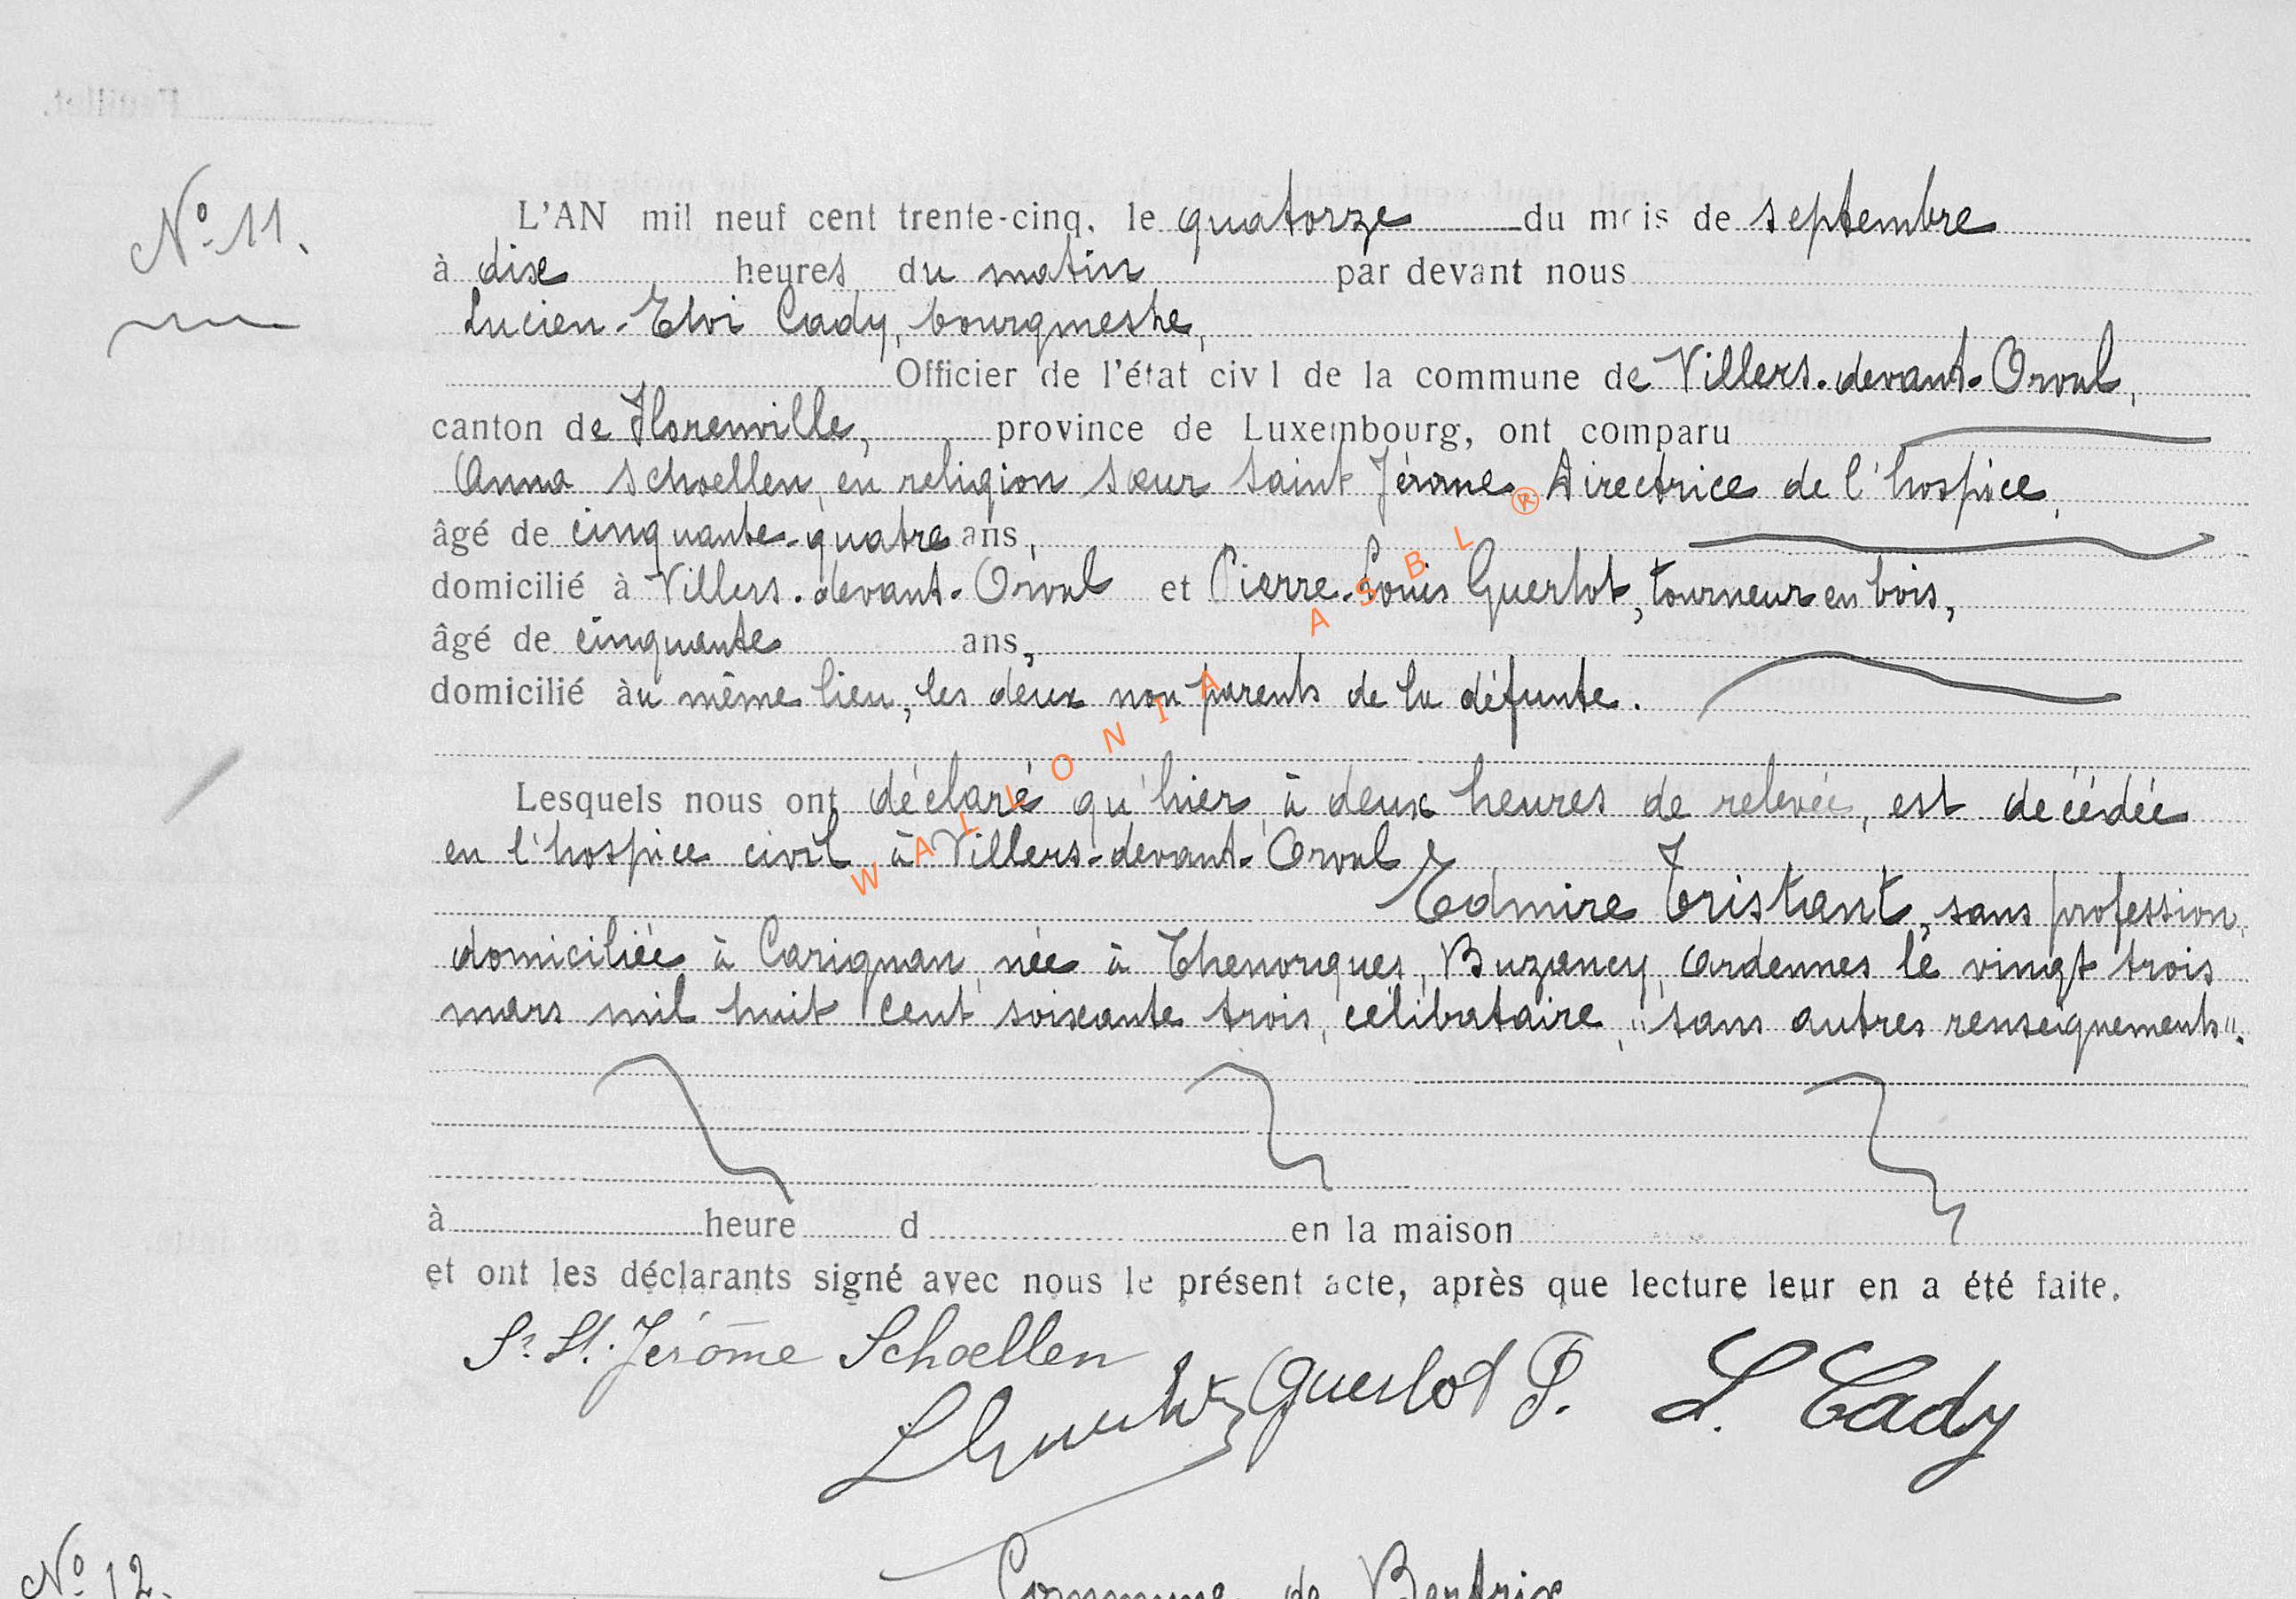 Feuillet.
N° 11.
L'AN mil neuf cent trente-cinq, le quatorze du mois de septembre
à dix heures du matin par devant nous
Lucien-Elvi Cady, bourgmestre,
Officier de l'état civl de la commune de Villers-devant-Orval,
canton de Florenville, province de Luxembourg, ont comparu
Anna Schoellen, en religion sœur Saint Jérome, Directrice de l'hospice,
âgé de cinquante-quatre ans,
domicilié à Villers-devant-Orval et Pierre-Louis Guerlot, tourneur en bois,
âgé de cinquante ans,
domicilié àu même lieu, les deux non parents de la défunte.
Lesquels nous ont déclaré qu'hier, à deux heures de relevée, est décédée
en l'hospice civil à Villers-devant-Orval
Edmire Tristant, sans profession,
domiciliée à Carignan, née à Thenorgues, Buzancy, Ardennes le vingt trois
mars mil huit cent soixante trois, célibataire, "sans autres renseignements".
à heure d en la maison
et ont les déclarants signé avec nous le présent acte, après que lecture leur en a été faite.
Sr. St. Jérôme Schoellen
Guerlot P. L. Cady
N° 12.
Commune de Bertrix
WALLONIA ASBL ®